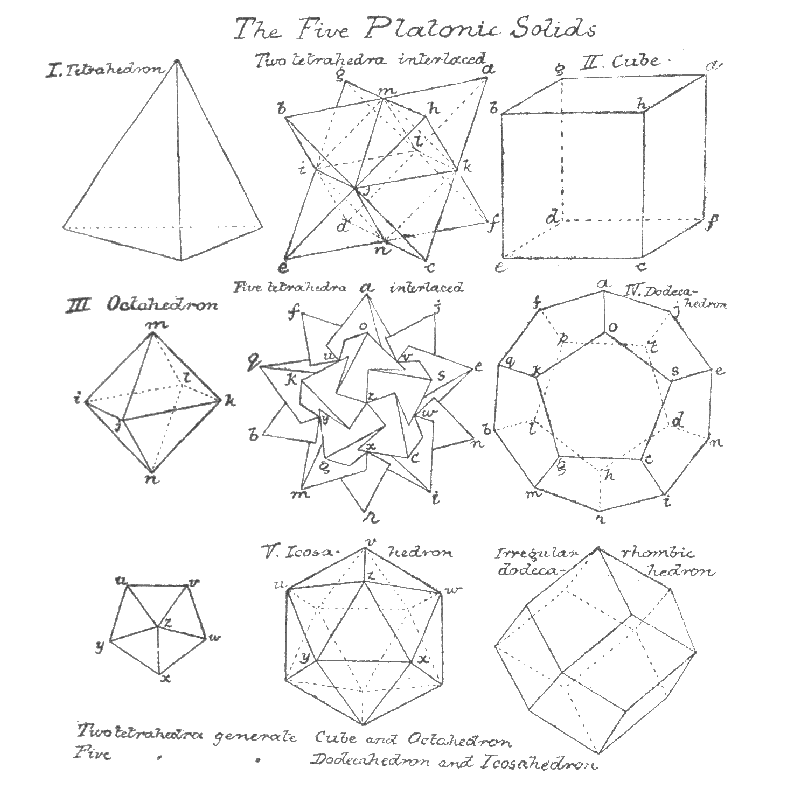 The Five Platonic Solids
I. Tetrahedron
Two tetrahedra interlaced
g
a
b
m
h
i
l
k
j
d
f
e
n
c
II. Cube.
g
a
b
h
d
f
e
c
III Octahedron
m
i
l
k
j
n
Five tetrahedra a interlaced
f
j
o
q
u
v
e
k
s
z
y
w
b
x
n
g
c
m
i
r
IV. Dodeca-
hedron
a
f
j
o
p
t
q
k
s
e
b
d
n
g
c
h
m
i
r
u
v
z
y
w
x
V. Icosa- hedron
v
u
z
w
y
x
Irregular rhombic
dodeca- hedron
Two tetrahedra generate Cube and Octahedron
Five " " Dodecahedron and Icosahedron